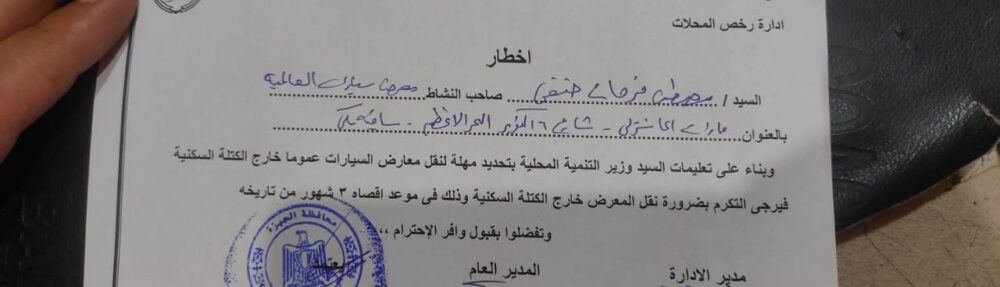 ادارة رخص المحلات
اخطار
السيد / مصطفى فرحات حنفى صاحب النشاط معرض سيارات العالمية
بالعنوان شارع ١٦ البحر الاعظم - ساقية مكى
وبناء على تعليمات السيد وزير التنمية المحلية بتحديد مهلة لنقل معارض السيارات عموما خارج الكتلة السكنية
فيرجى التكرم بضرورة نقل المعرض خارج الكتلة السكنية وذلك فى موعد اقصاه ٣ شهور من تاريخه
وتفضلوا بقبول وافر الإحترام ،،
محافظة الجيزة
يعتمد
مدير الادارة المدير العام